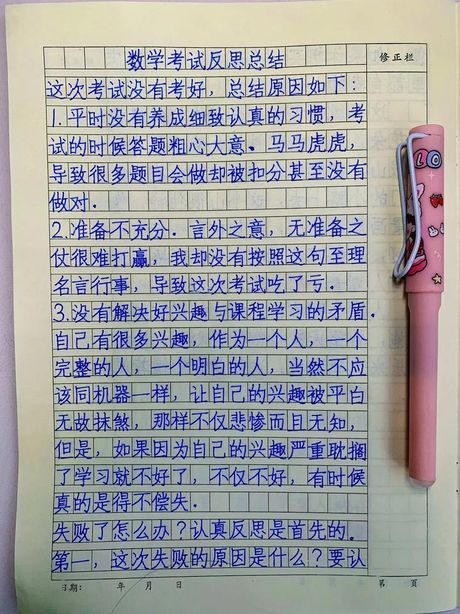 数学考试反思总结
修正栏
这次考试没有考好，总结原因如下：
1.平时没有养成细致认真的习惯，考
试的时候答题粗心大意．马马虎虎，
导致很多题目会做却被扣分甚至没有
做对．
2.准备不充分．言外之意，无准备之
仗很难打赢，我却没有按照这句至理
名言行事，导致这次考试吃了亏．
3.没有解决好兴趣与课程学习的矛盾．
自己有很多兴趣，作为一个人，一个
完整的人，一个明白的人，当然不应
该同机器一样，让自己的兴趣被平白
无故抹煞，那样不仅悲惨而且无知，
但是，如果因为自己的兴趣严重耽搁
了学习就不好了，不仅不好，有时候
真的是得不偿失．
失败了怎么办？认真反思是首先的．
第一，这次失败的原因是什么？要认
日期： 年 月 日 第 页
LO